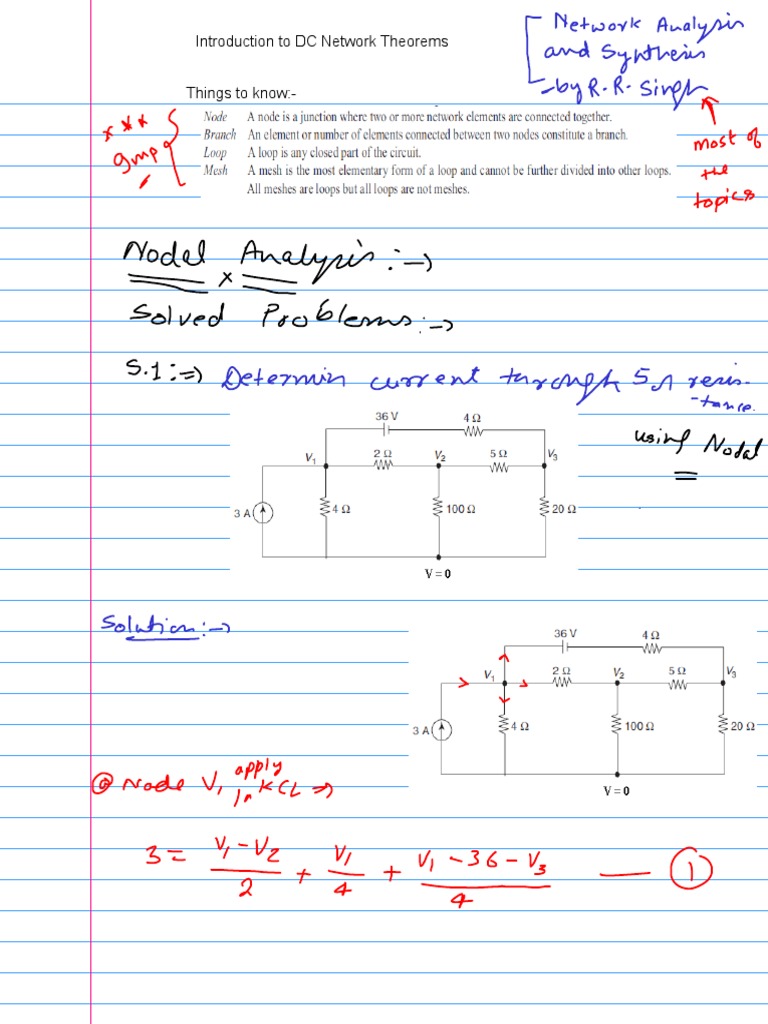 Introduction to DC Network Theorems
Network Analysis
and Synthesis
-by R. R. Singh
Things to know:-
Node A node is a junction where two or more network elements are connected together.
Branch An element or number of elements connected between two nodes constitute a branch.
Loop A loop is any closed part of the circuit.
Mesh A mesh is the most elementary form of a loop and cannot be further divided into other loops.
All meshes are loops but all loops are not meshes.
*** 
Imp
most of
the
topics
Nodal Analysis :→
Solved Problems :→
S.1 :⇒ Determin current through 5Ω resis-
-tance.
using Nodal
36 V 4 Ω
V1 2 Ω V2 5 Ω V3
3 A 4 Ω 100 Ω 20 Ω
V = 0
Solution :→
36 V 4 Ω
V1 2 Ω V2 5 Ω V3
3 A 4 Ω 100 Ω 20 Ω
V = 0
@ Node V1 apply KCL ⇒
3 = (V1 - V2)/2 + V1/4 + (V1 - 36 - V3)/4 — 1